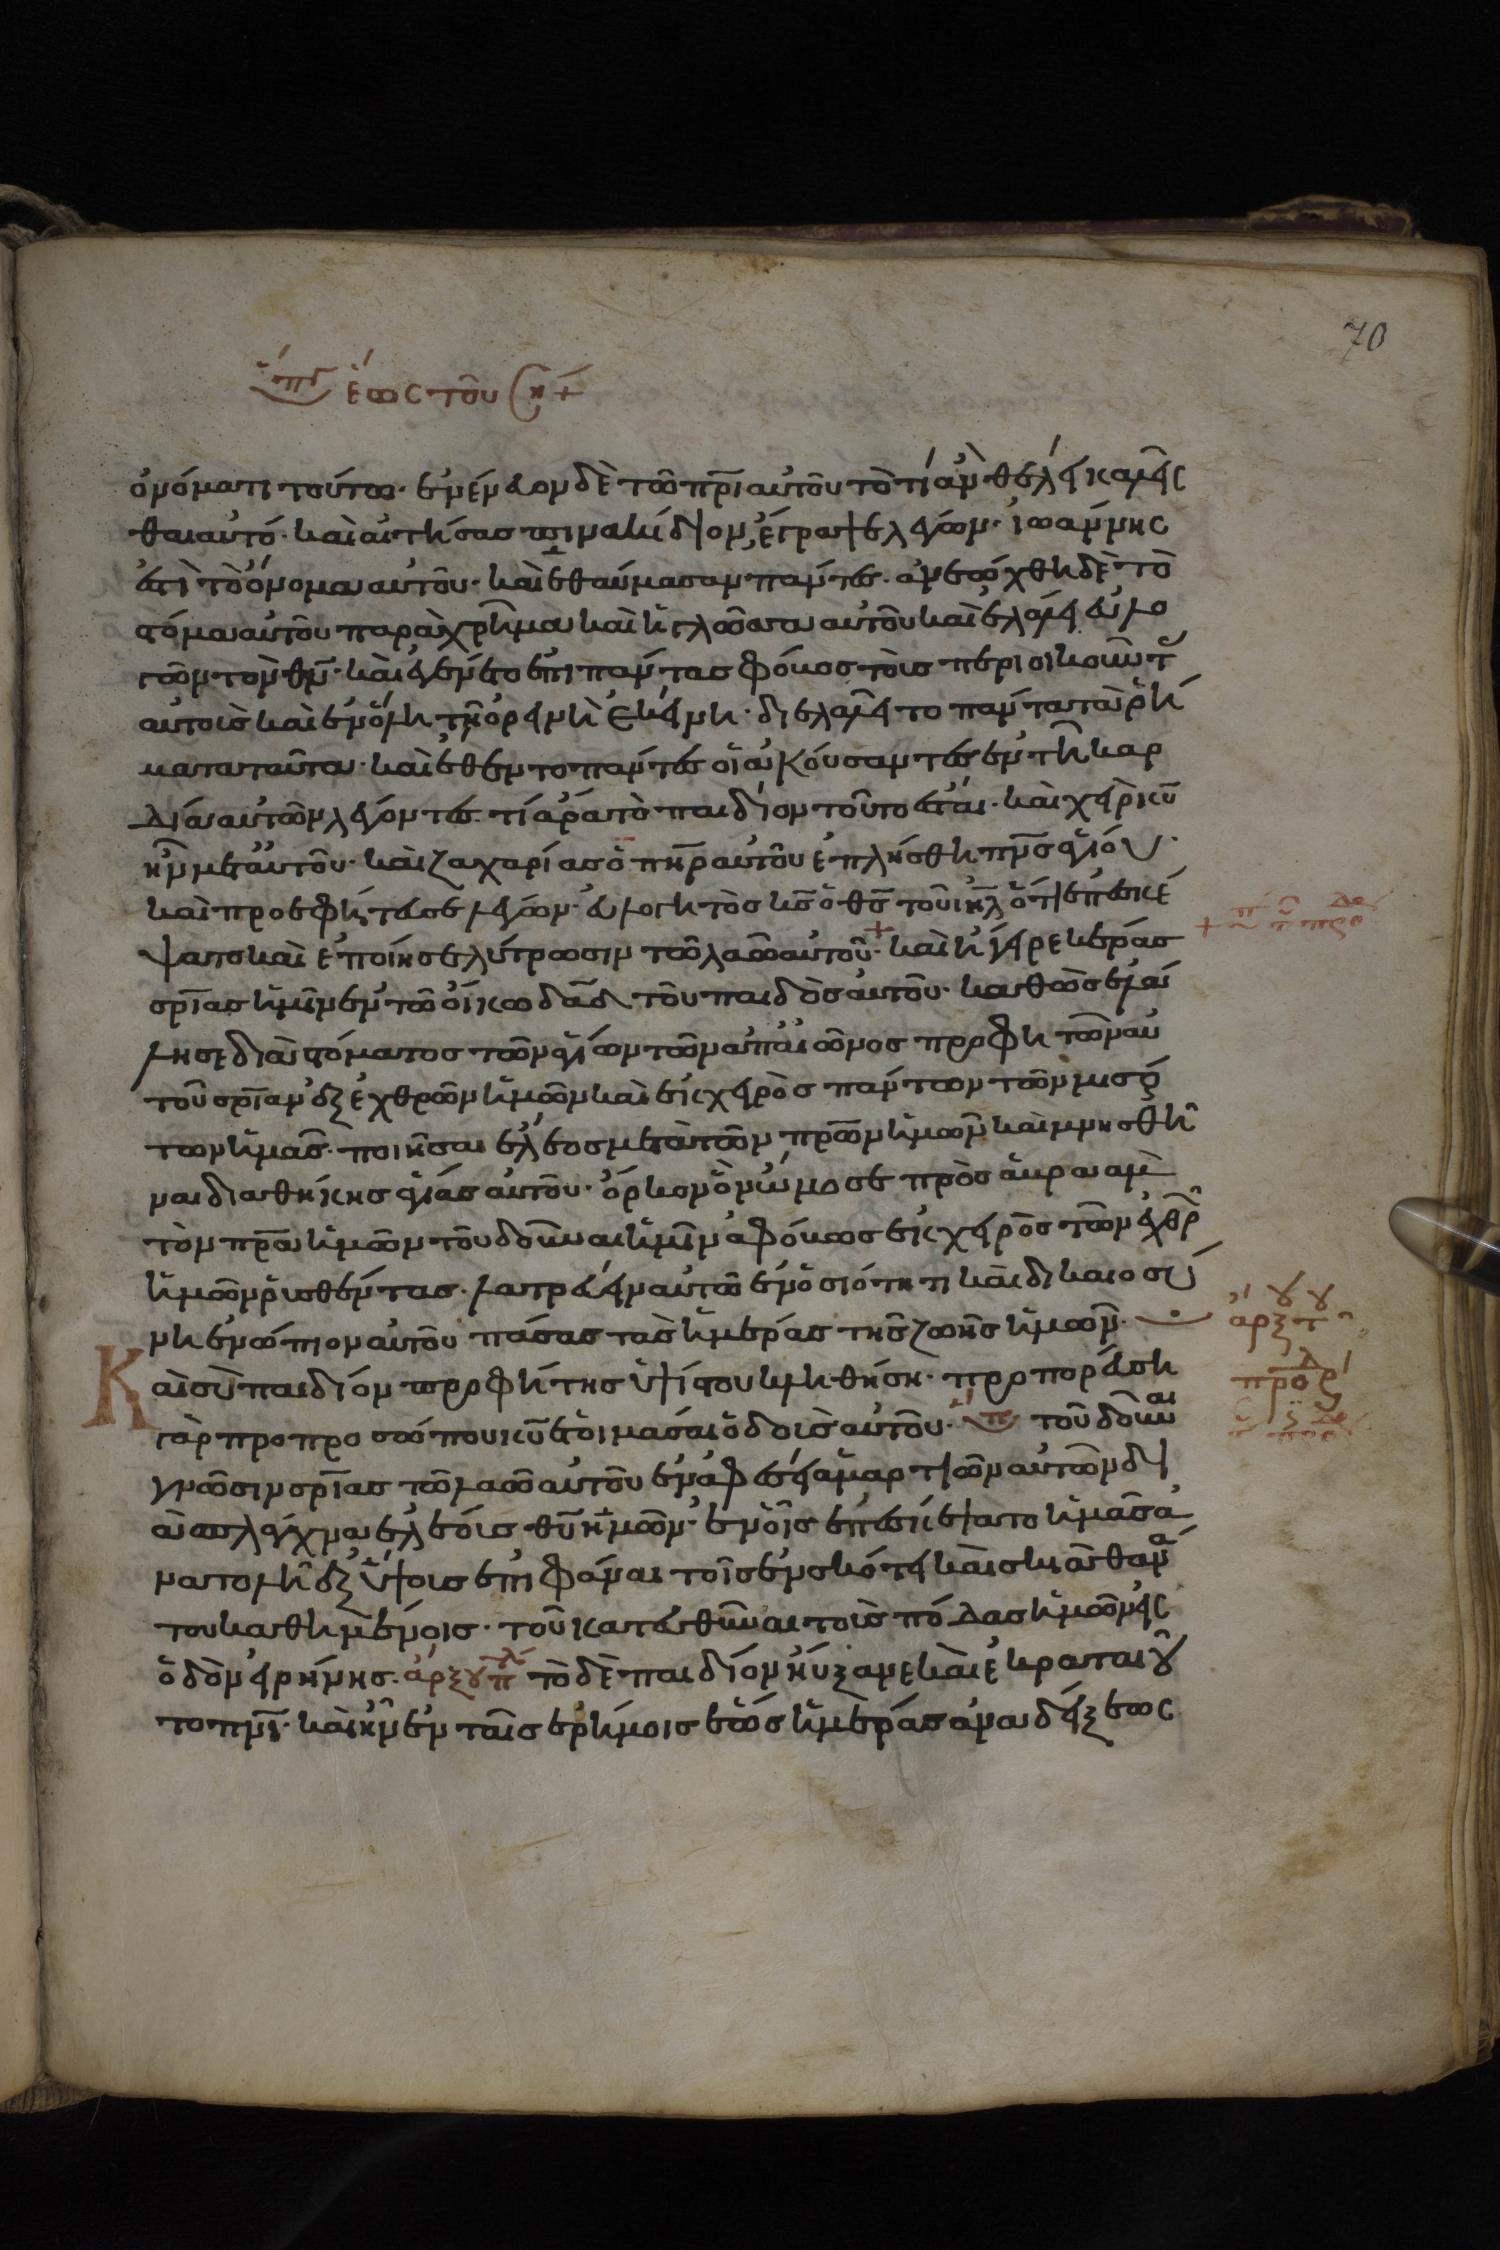 70
ἕως τοῦ
ὀνόματι τούτω· ἐνένευον δὲ τῶ πρῒ αὐτοῦ τὸ τί ἂν θέλει καλεῖσ
θαι αὐτό· καὶ αἰτήσας πινακίδιον, ἔγραψε λέγων· ἰωάννης
ἐστὶ τὸ ὄνομα αὐτοῦ· καὶ ἐθαύμασαν πάντες· ἀνεώχθη δὲ τὸ
στόμα αὐτοῦ παραχρῆμα καὶ ἡ γλῶσσα αὐτοῦ καὶ ἐλάλει εὐλο
γῶν τὸν θν̄· καὶ ἐγένετο ἐπὶ πάντας φόβος τοὺς περιοικοῦντ
αὐτοὺς καὶ ἐν ὅλη τῆ ὀρεινῆ διελαλεῖτο πάντα τὰ ῥή
ματα ταῦτα· καὶ ἔθεντο πάντες οἱ ἀκούσαντες ἐν τῆ καρ
δία αὐτῶν λέγοντες· τί ἄρα τὸ παιδίον τοῦτο ἔσται· καὶ χεὶρ κῡ
ἦν μετ αὐτοῦ· καὶ ζαχαρίας ὁ πηρ̄ αὐτοῦ ἐπλήσθη πνς̄ ἁγίου·
καὶ προεφήτευσε λέγων· εὐλογητὸς κς̄ ὁ θς̄ τοῦ ιηλ̄ ὅτι ἐπεσκέ
ψατο καὶ ἐποίησε λύτρωσιν τῶ λαῶ αὐτοῦ· καὶ ἤγειρε κέρας
σρίας ἡμῖν ἐν τῶ οἴκω δαδ̄ τοῦ παιδὸς αὐτοῦ· καθὼς ἐλά
λησε διὰ στόματος τῶν ἁγίων τῶν ἀπ αἰῶνος προφητῶν αὐ
τοῦ σρίαν ἐξ ἐχθρῶν ἡμῶν καὶ ἐκ χειρὸς πάντων τῶν μισού
των ἡμᾶς· ποιῆσαι ἔλεος μετὰ τῶν πρων̄ ἡμῶν καὶ μνησθῆ
ναι διαθήκης ἁγίας αὐτοῦ· ὅρκον ὃν ὤμοσε πρὸς ἀβραὰμ
τὸν πρᾱ ἡμῶν τοῦ δοῦναι ἡμῖν ἀφόβως ἐκ χειρὸς τῶν ἐχθρ
ἡμῶν ῥυσθέντας· λατρεύειν αὐτῶ ἐν ὁσιότητι καὶ δικαιοσύ
νη ἐνώπιον αὐτοῦ πάσας τὰς ἡμέρας τῆς ζωῆς ἡμῶν·
Καὶ σὺ παιδίον προφήτης ὑψίστου κληθήση· προπορεύση
γὰρ πρὸ προσώπου κῡ ἑτοιμάσαι ὁδοὺς αὐτοῦ· τοῦ δοῦναι
γνῶσιν σρίας τῶ λαῶ αὐτοῦ ἐν ἀφέσει ἁμαρτιῶν αὐτῶν δι
ὰ σπλάγχνα ἐλέους θῡ ἡμῶν· ἐν οἷς ἐπεσκέψατο ἡμᾶς ἀ
νατολὴ ἐξ ὕψους ἐπιφάναι τοῖς ἐν σκότει καὶ σκιᾶ θανά
του καθημένοις· τοῦ κατευθῦναι τοὺς πόδας ἡμῶν εἰς
ὁδὸν εἰρήνης· τὸ δὲ παιδίον ηὔξανε καὶ ἐκραταιοῦ
το πνῑ· καὶ ἦν ἐν ταῖς ἐρήμοις ἕως ἡμέρας ἀναδείξεως